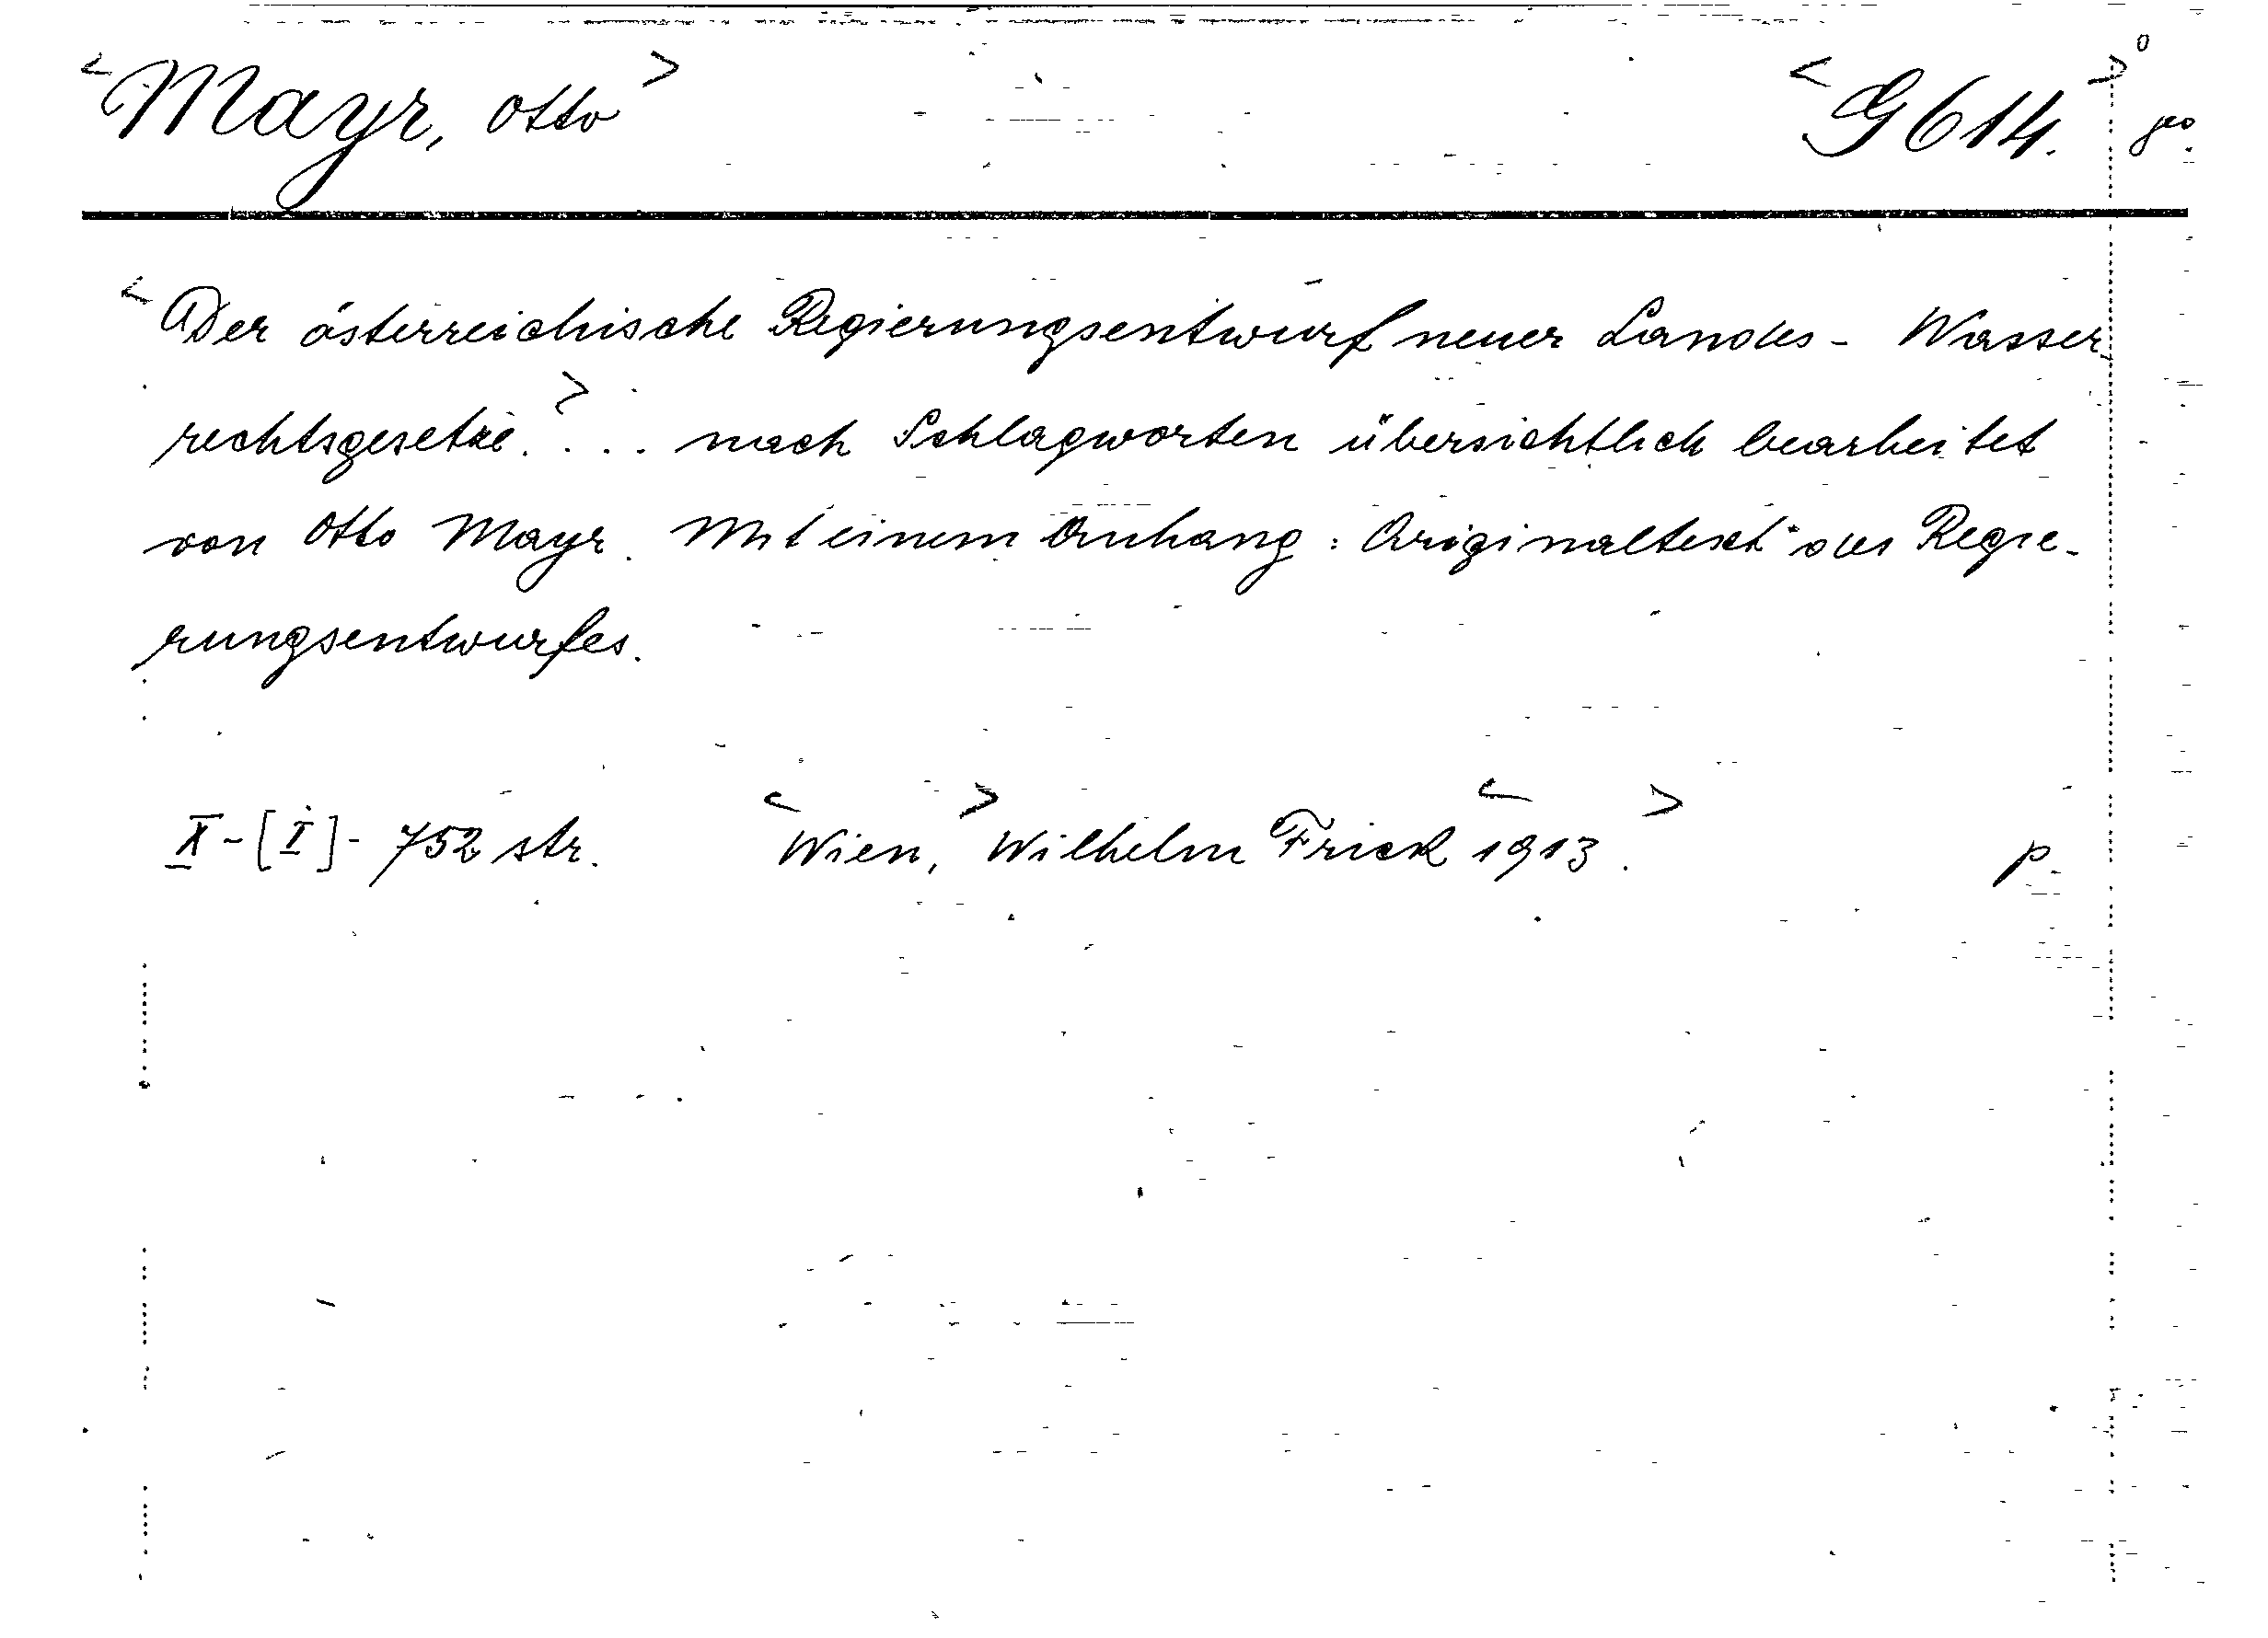 <Mayr, Otto> <G 614.>
<Der österreichische Regierungsentwurf neuer Landes- Wasser-
rechtsgesetze.> ... nach Schlagworten übersichtlich bearbeitet
von Otto Mayr. Mit einem Anhang: Originaltext des Regie-
rungsentwurfes.
X-[I]- 752 str. <Wien,> Wilhelm Frick <1913.> p.